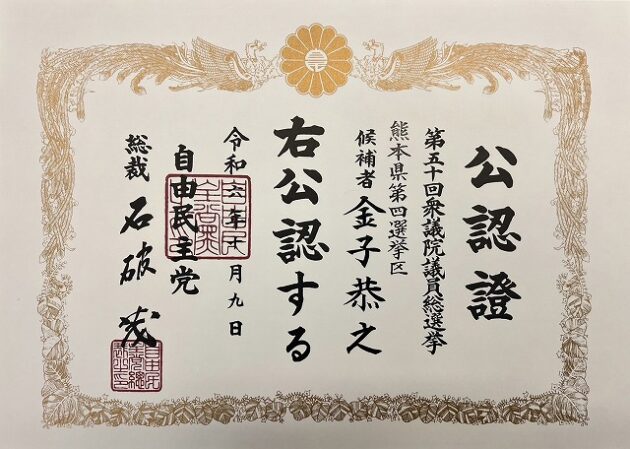 公認證
第五十回衆議院議員総選挙
熊本県第四選挙区
候補者 金子恭之
右公認する
令和六年十月九日
自由民主党
総裁 石破茂